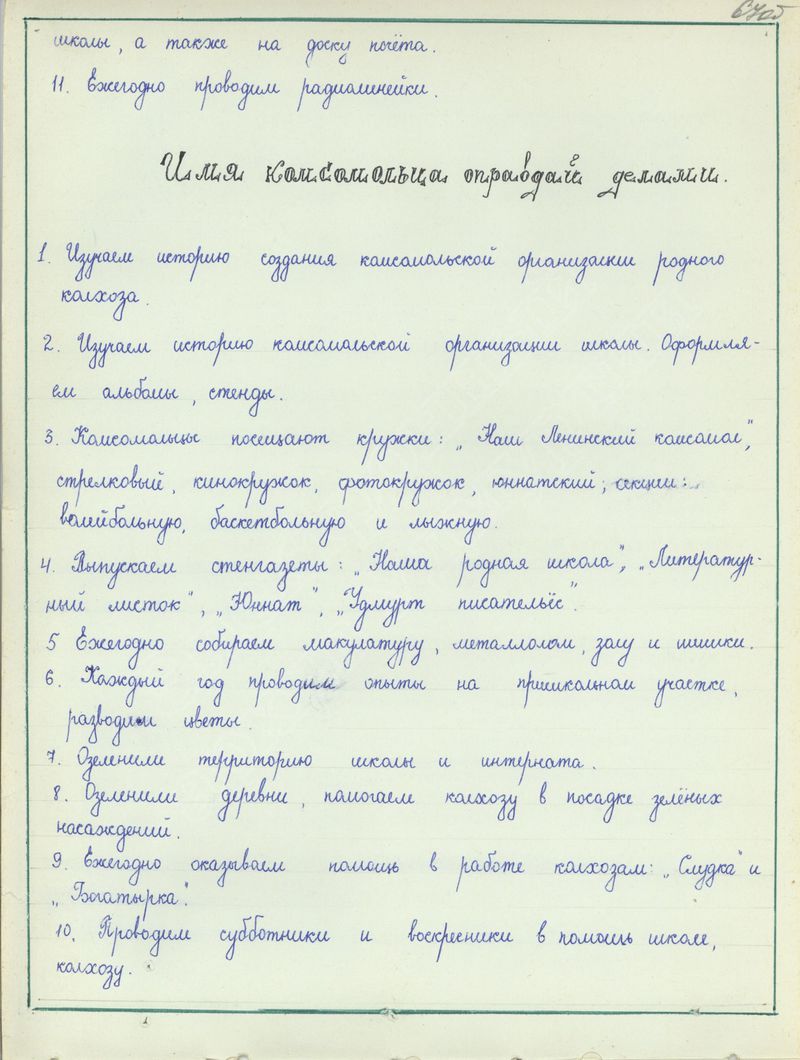 школы, а также на доску почёта.
11. Ежегодно проводим радиолинейки.
Имя комсомольца оправдай делами.
1. Изучаем историю создания комсомольской организации родного
колхоза.
2. Изучаем историю комсомольской организации школы. Оформля-
ем альбомы, стенды.
3. Комсомольцы посещают кружки: „Наш Ленинский комсомол",
стрелковый, кинокружок, фотокружок, юннатский; секции:
волейбольную, баскетбольную и лыжную.
4. Выпускаем стенгазеты: „Наша родная школа", „Литератур-
ный листок", „Юннат", „Удмурт писательёс".
5 Ежегодно собираем макулатуру, металлолом, золу и шишки.
6. Каждый год проводим опыты на пришкольном участке,
разводим цветы.
7. Озеленили территорию школы и интерната.
8. Озеленили деревни, помогаем колхозу в посадке зелёных
насаждений.
9. Ежегодно оказываем помощь в работе колхозам: „Слудка" и
„Богатырка".
10. Проводим субботники и воскресники в помощь школе,
колхозу.